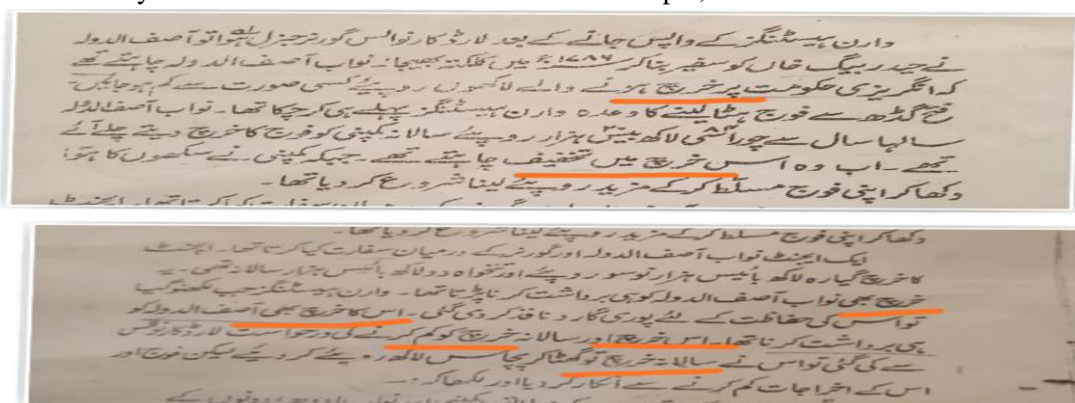 وارن ہیسٹنگز کے واپس جانے کے بعد لارڈ کارنوالس گورنر جنرل ہوا تو آصف الدولہ
نے حیدر بیگ خاں کو سفیر بنا کر ۱۷۸۶ء میں کلکتہ بھیجا۔ نواب آصف الدولہ چاہتے تھے
کہ انگریزی حکومت پر خرچ ہونے والے لاکھوں روپیئے کسی صورت سے کم ہو جائیں۔
فتح گڈھ سے فوج ہٹا لینے کا وعدہ وارن ہیسٹنگز پہلے ہی کر چکا تھا۔ نواب آصف الدولہ
سالہا سال سے چوراسی لاکھ بیس ہزار روپیئے سالانہ کمپنی کو فوج کا خرچ دیتے چلے آئے
تھے۔ اب وہ اس خرچ میں تخفیف چاہتے تھے۔ جبکہ کمپنی نے سکھوں کا ہوّا
دکھا کر اپنی فوج مسلّط کر کے مزید روپیئے لینا شروع کر دیا تھا۔
دکھا کر اپنی فوج مسلط کر کے مزید روپیئے لینا شروع کر دیا تھا۔
ایک ایجنٹ نواب آصف الدولہ اور گورنر کے درمیان سفارت کیا کرتا تھا۔ ایجنٹ
کا خرچ گیارہ لاکھ بائیس ہزار نو سو روپیئے اور تنخواہ دو لاکھ بائیس ہزار سالانہ تھی۔ یہ
خرچ بھی نواب آصف الدولہ کو ہی برداشت کرنا پڑتا تھا۔ وارن ہیسٹنگز جب لکھنؤ گیا
تو اس کی حفاظت کے لئے پوری گارد نافذ کر دی گئی۔ اس کا خرچ بھی آصف الدولہ کو
ہی برداشت کرنا تھا۔ اس خرچ اور سالانہ خرچ کو کم کرنے کی درخواست لارڈ کارنوالس
سے کی گئی تو اس نے سالانہ خرچ تو گھٹا کر پچاس لاکھ روپیئے کر دیئے لیکن فوج اور
اس کے اخراجات کم کرنے سے انکار کر دیا اور لکھا کہ:۔